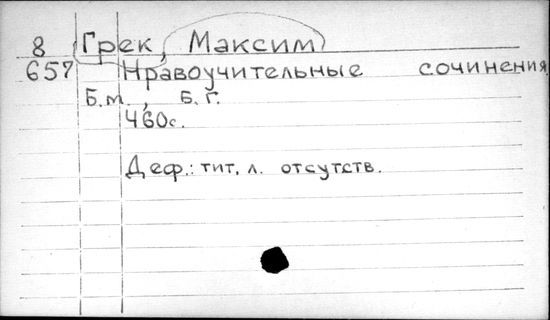 8 Грек, Максим
657 Нравоучительные сочинения
Б.м., Б.г.
460с.
Деф.: тит. л. отсутств.